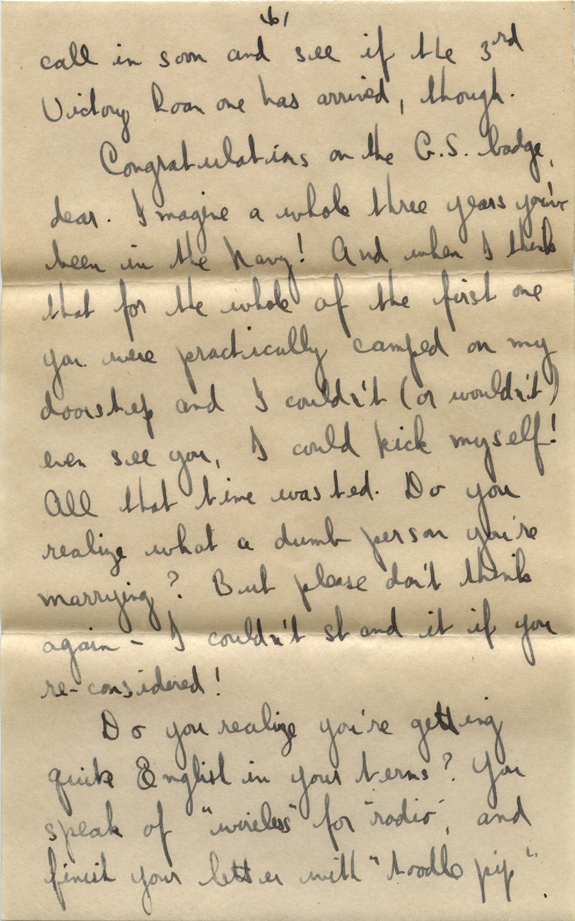 /6/
call in soon and see if the 3rd
Victory Loan one has arrived, though.
Congratulations on the G.S. badge,
dear. Imagine a whole three years you've
been in the Navy! And when I think
that for the whole of the first one
you were practically camped on my
doorstep and I couldn't (or wouldn't)
even see you, I could kick myself!
All that time wasted. Do you
realize what a dumb person you're
marrying? But please don't think
again - I couldn't stand it if you
re-considered!
Do you realize you're getting
quite English in your terms? You
speak of "wireless" for "radio", and
finish your letter with "toodle pip".